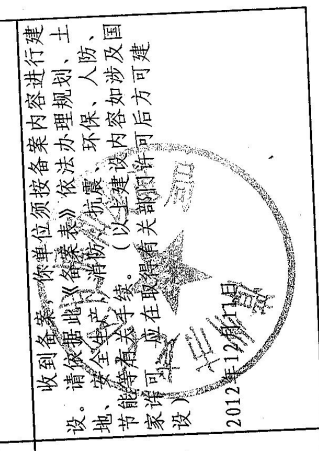 收到备案。你单位须按备案内容进行建
设。请依据此《备案表》依法办理规划、土
地、安全生产、消防、抗震、环保、人防、
节能等有关手续。（以上建设内容如涉及国
家许可，应在取得有关部门许可后方可建
设）
2012年12月11日